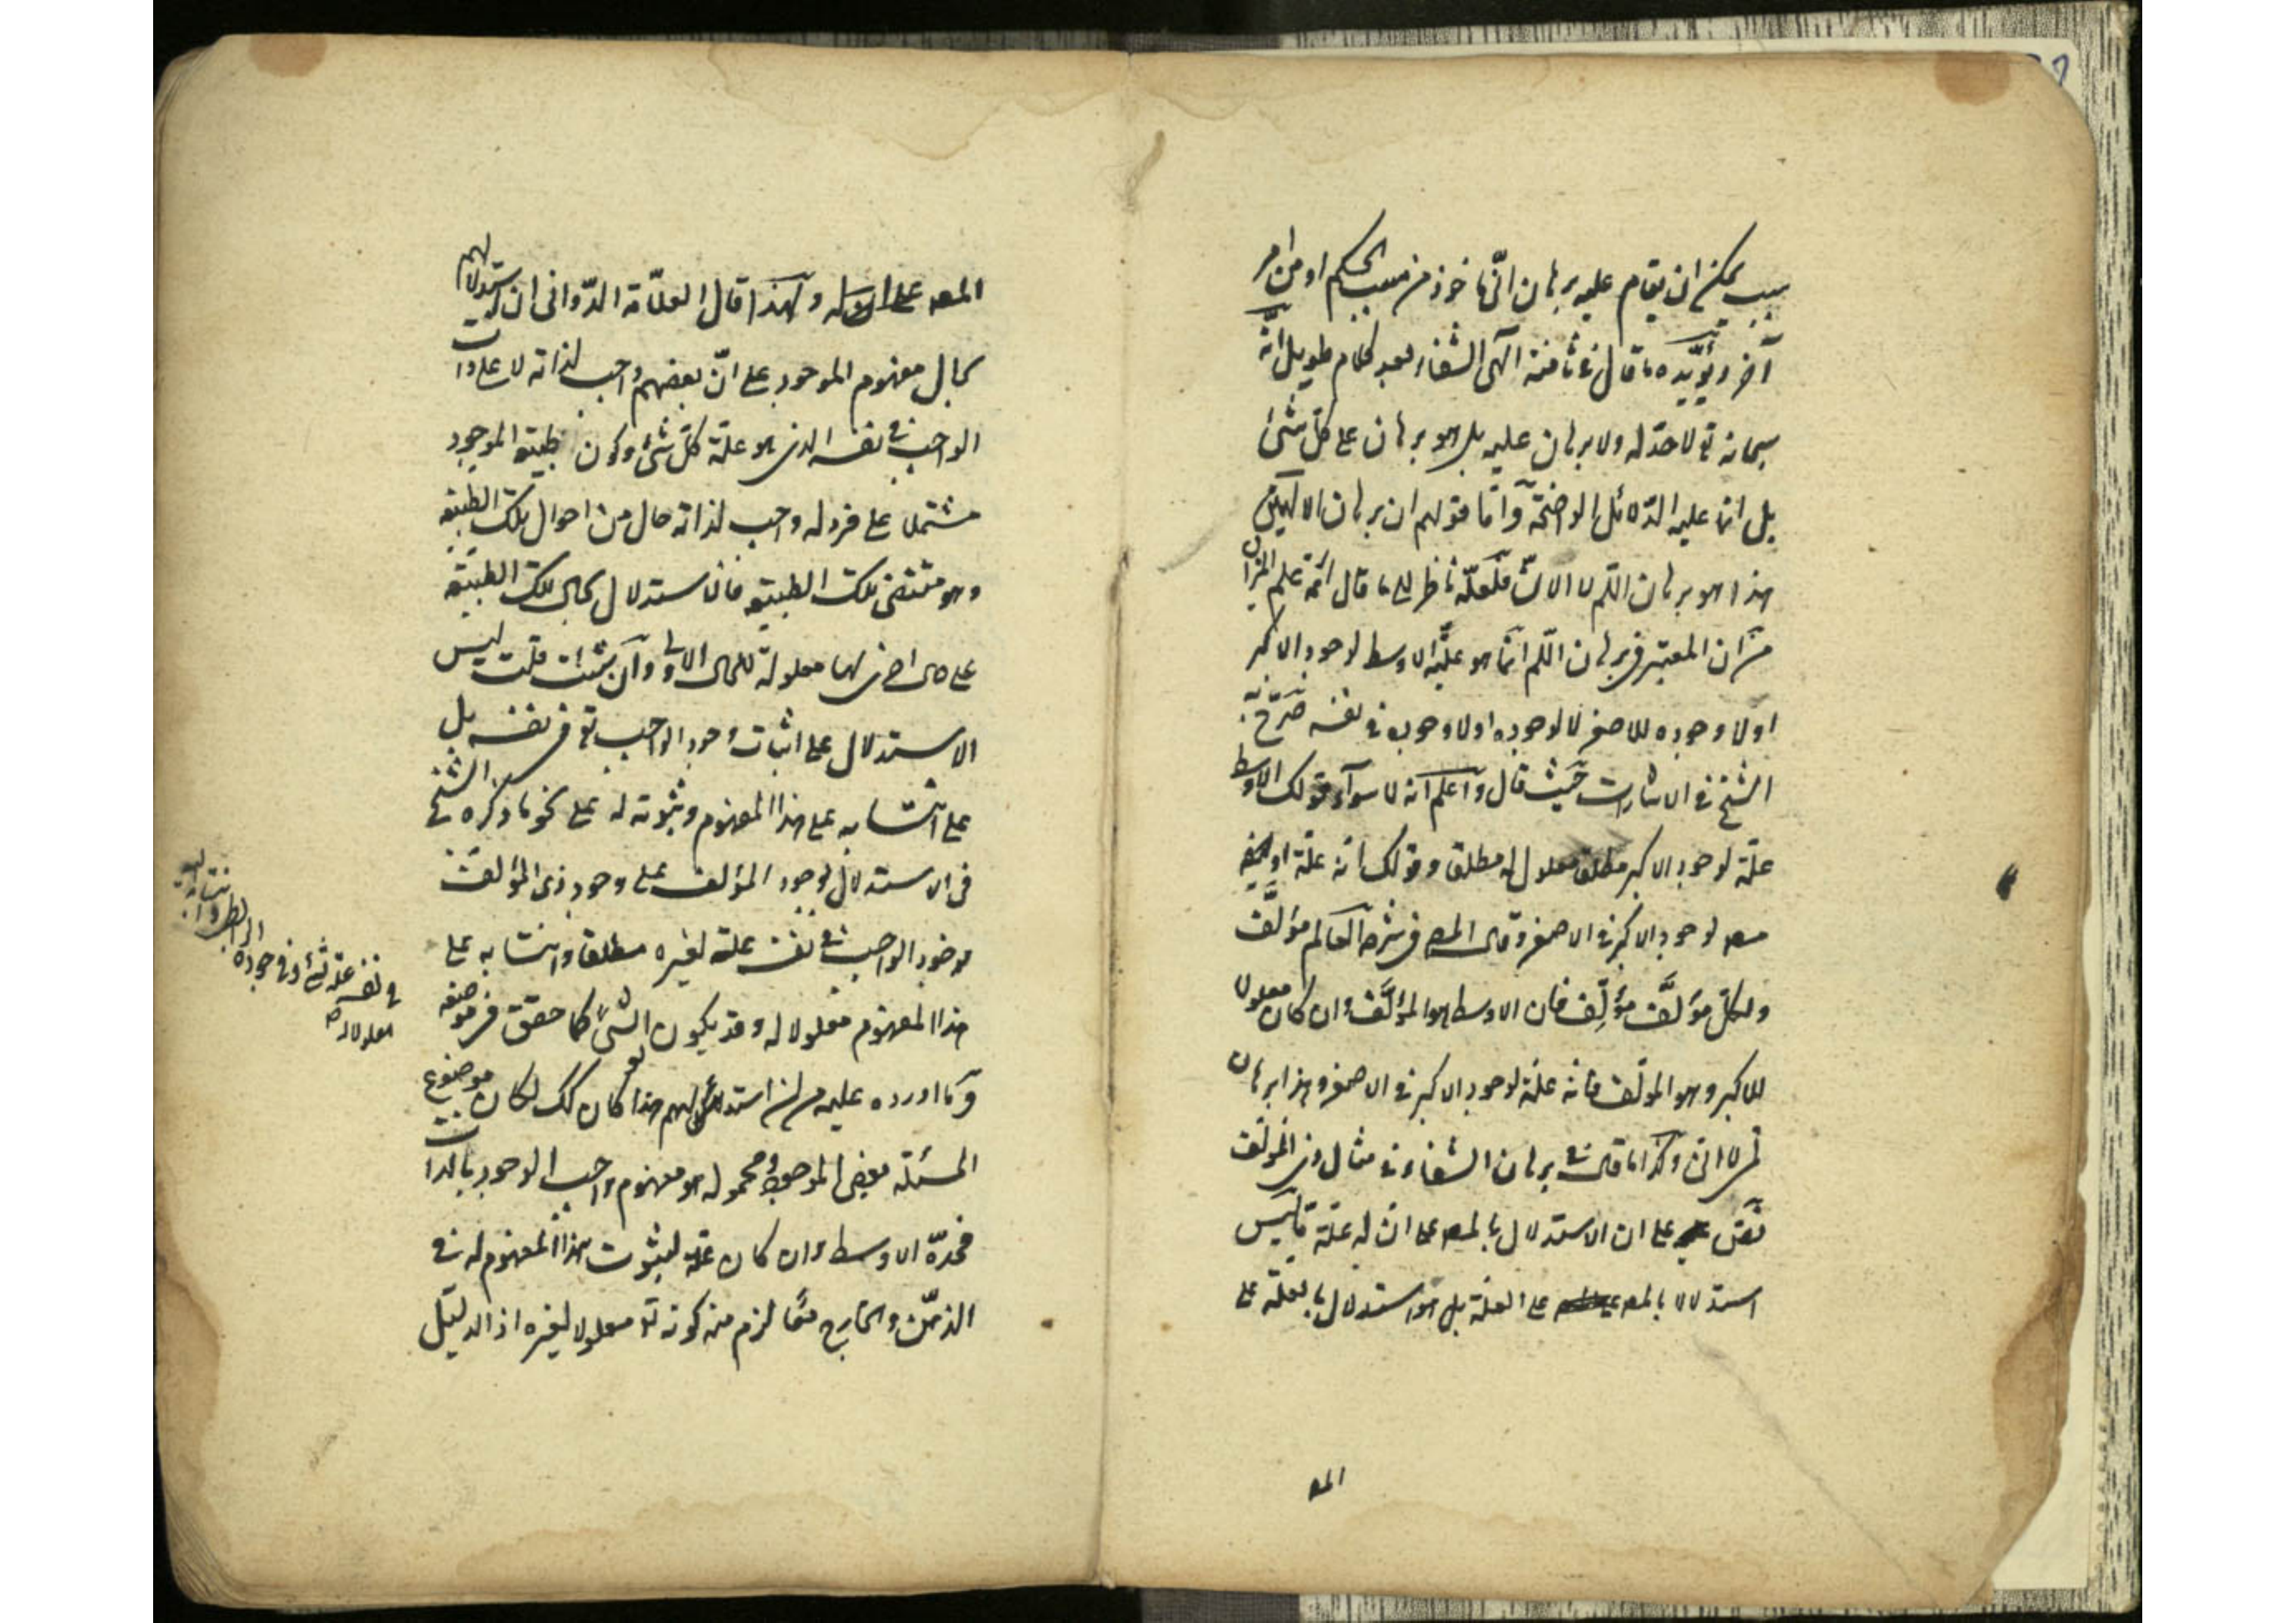 سبب يمكن ان يقام عليه برهان انّى ماخوذ من مسبب الحكم او من امر
آخر ويؤيّده ما قال فى ثامنة الٓهى الشفاء بعد كلام طويل انّه
سبحانه تع لا حدّ له ولا برهان عليه بل هو برهان على كلّ شئ
بل انما عليه الدّلائل الواضحة وامّا قولهم ان برهان الالهيين
هذا هو برهان اللّم لا الانّ فلعلّه ناظر الى ما قال ائمّة علم الميزان
من ان المعتبر فى برهان اللّم انّما هو علّيّة الاوسط لوجود الاكبر
اولا وجوده للاصغر لا لوجوده اولا وجوبه فى نفسه صرّح به
الشيخ فى الاشارات حيث قال واعلم انه لا سواء قولك الاوسط
علّة لوجود الاكبر مطلقا معلول له مطلقا وقولك انّه علّة او
معه لوجود الاكبر فى الاصغر وقال المص فى شرحه العالم مؤلَّف
ولكلّ مؤلَّف مؤلِّف فان الاوسط هو المؤلَّف وان كان معلولا
للاكبر وهو المولّف فانه علّة لوجود الاكبر فى الاصغر وهذا برهان
لمّ لا انّ وكذا ما قال فى برهان الشفاء فى مثال ذى المؤلّف
نصّ على ان الاستدلال بالمعه على انّ له علّة ما ليس
استدلالا بالمعه على العلّة بل هو استدلال بالعلّة على
المع
المعه ولهذا قال العلّامة الدّوانى ان استدلالهم
بحال مفهوم الموجود على انّ بعضهم واجب لذاته لا على ذات
الواجب فى نفسه الذى هو علّة كلّ شئ وكون طبيعة الموجود
مشتملا على فرد له واجب لذاته حال من احوال تلك الطبيعة
وهو مقتضى تلك الطبيعة فالاستدلال بحال تلك الطبيعة
على حال اخرى لها معلولة للحال الاولى وان شئت قلت ليس
الاستدلال على اثبات وجود الواجب تع فى نفسه بل
على انتسابه على هذا المفهوم وثبوته له على نحو ما ذكره الشيخ
فى الاستدلال لوجود المؤلف على وجود ذى المؤلف
فوجود الواجب فى نفسه علة لغيره مطلقا وانتسابه على
هذا المفهوم معلولا له وقد يكون الشئ كما حقق فى موضعه
فى نفسه علة لشئ وفى وجوده
الرابطى وانتسابه اليه
معلولا له صح
وما اورده عليه من ان استدلالهم هذا لو كان كك لكان موضوع
المسئلة بعض الموجود ومحموله هو مفهوم واجب الوجود بالذات
فحدّه الاوسط وان كان علّة لثبوت هذا المفهوم له فى
الذهن والخارج فما لزم منه كونه تع معلولا لغيره اذ الدليل